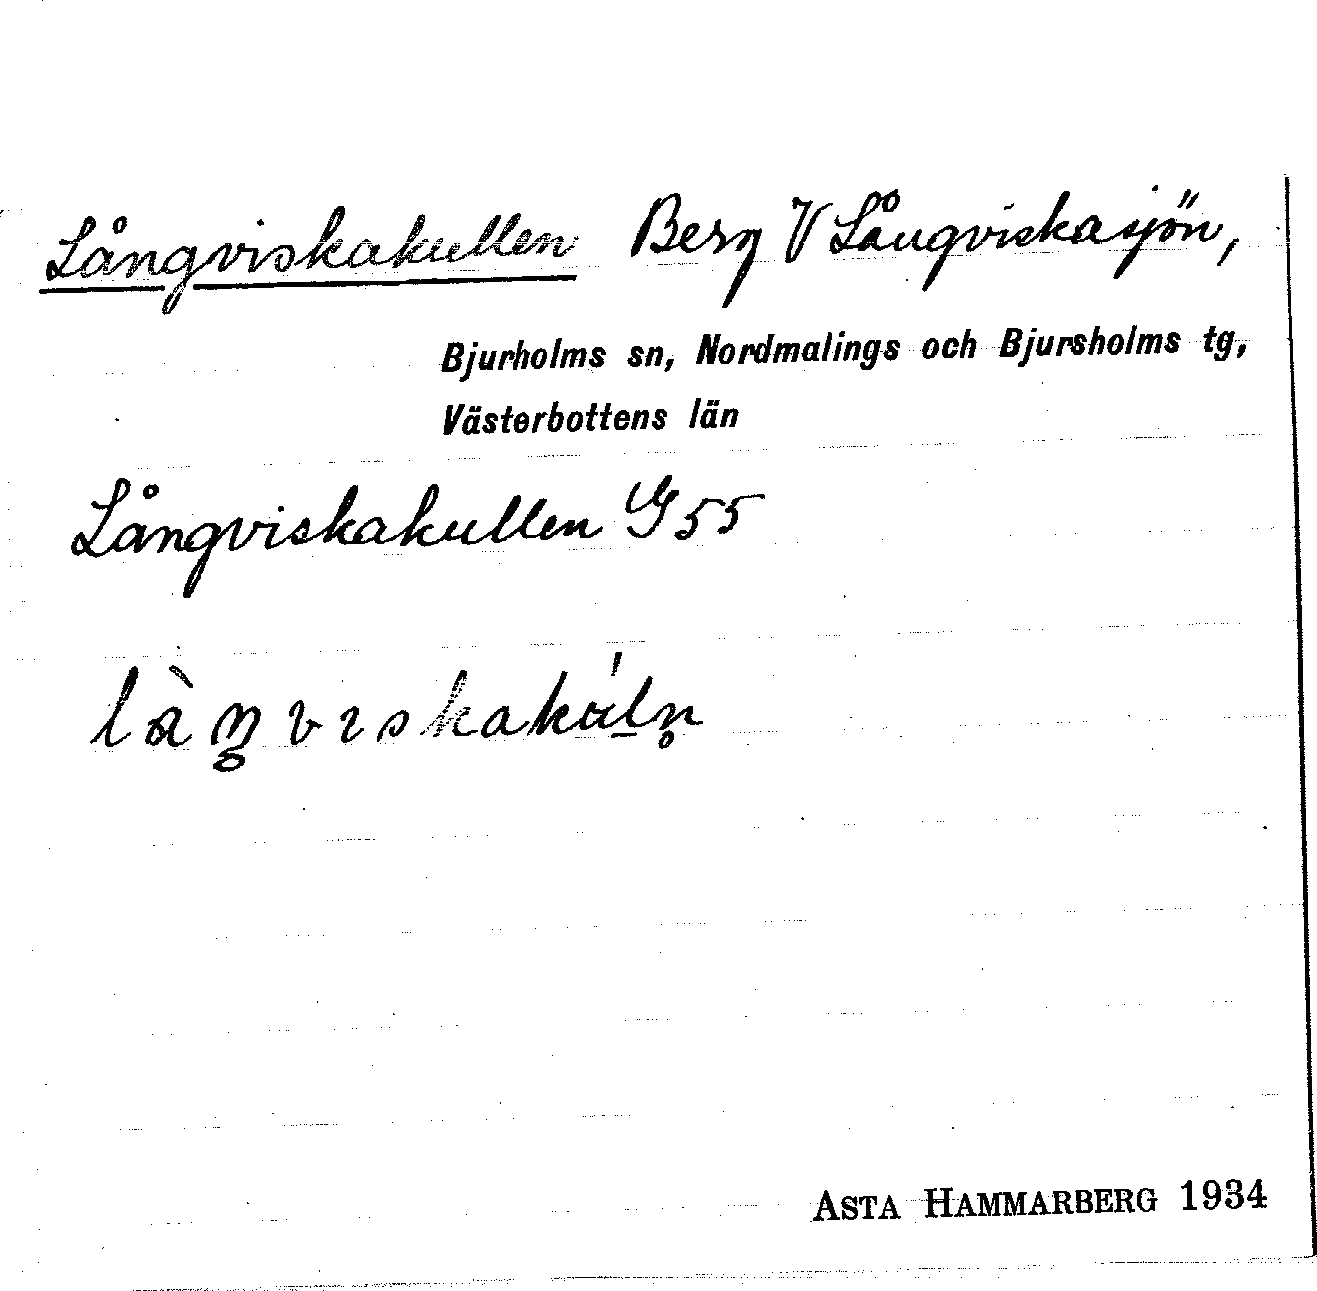 Långviskakullen Berg V Långviskasjön,
Bjurholms sn, Nordmalings och Bjursholms tg,
Västerbottens län
Långviskakullen G 55
làŋviskakúl̲n̥
ASTA HAMMARBERG 1934